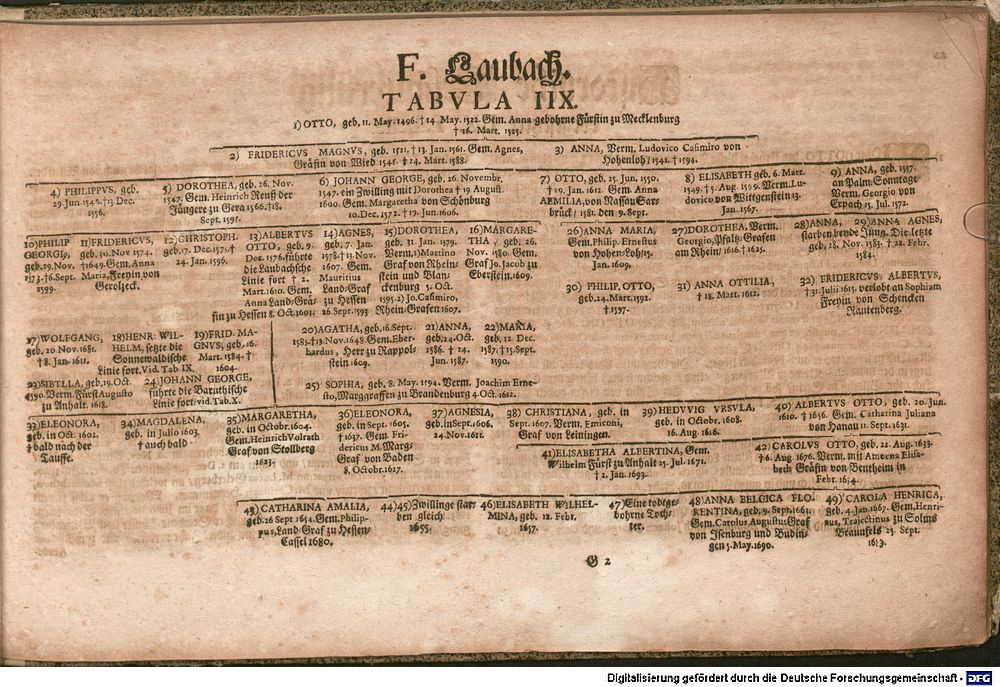 F. Laubach.
TABVLA IIX.
1) OTTO, geb. 11. May. 1496. † 14. May. 1522. Gem. Anna gebohrne Fürstin zu Mecklenburg
† 16. Mart. 1525.
2) FRIDERICVS MAGNVS, geb. 1521. † 13. Jan. 1561. Gem. Agnes,
Gräfin von Wied 1545. † 24. Mart. 1588.
3) ANNA, Verm. Ludovico Casimiro von
Hohenloh / 1541. † 1594.
4) PHILIPPVS, geb.
29. Jun. 1546. † 13. Dec.
1556.
5) DOROTHEA, geb. 26. Nov.
1547. Gem. Heinrich Reuß der
Jüngere zu Gera 1566. † 18.
Sept. 1591.
6) JOHANN GEORGE, geb. 26. Novembr.
1547. ein Zwilling mit Dorothea † 19. August.
1600. Gem. Margaretha von Schönburg
10. Dec. 1572. † 19. Jun. 1606.
7) OTTO, geb. 25. Jun. 1550.
† 19. Jan. 1612. Gem. Anna
AEMILIA, von Nassau Sar-
brück / 1581. den 9. Sept.
8) ELISABETH geb. 6. Mart.
1549. † 5. Aug. 1599. Verm. Lu-
dovico von Wittgenstein 13.
Jan. 1567.
9) ANNA, geb. 1557.
an Palm-Sonntage
Verm. Georgio von
Erpach 15. Jul. 1572.
10) PHILIP
GEORGI9,
geb. 29. Nov.
1573. † 6. Sept.
1599.
11) FRIDERICVS,
geb. 30. Nov 1574.
† 1649. Gem. Anna
Maria, Freyin von
Geroltzeck.
12) CHRISTOPH.
geb. 17. Dec. 1575. †
24. Jan. 1596.
13) ALBERTVS
OTTO, geb. 9.
Dec. 1576. führte
die Laubachische
Linie fort † 2.
Mart. 1610. Gem.
Anna Land-Grä-
fin zu Hessen 8. Oct. 1601.
14) AGNES,
geb. 7. Jan.
1578. † 15. Nov.
1607. Gem.
Mauritius
Land-Graf
zu Hessen
26. Sept. 1593
15) DOROTHEA,
geb. 31. Jan. 1579.
Verm. 1) Martino
Graf von Rhein-
stein und Blan-
ckenburg 5. Oct.
1595. 2) Jo. Casimiro,
Rhein-Grafen 1607.
16) MARGARE-
THA, geb. 26.
Nov. 1580. Gem.
Graf Jo. Jacob zu
Eberstein. 1609.
26) ANNA MARIA,
Gem. Philip. Ernestus
von Hohen-Loh / 15.
Jan. 1609.
27) DOROTHEA, Verm.
Georgio, Pfaltz-Grafen
am Rhein / 1616. † 1625.
28) ANNA, 29) ANNA AGNES,
starben beyde Jung. Die letzte
geb. 18. Nov. 1583. † 22. Febr.
1584.
30) PHILIP. OTTO,
geb. 24. Mart. 1592.
† 1597.
31) ANNA OTTILIA,
† 18. Mart. 1612.
32) FRIDERICVS ALBERTVS,
† 31. Julii 1615. verlobt an Sophiam
Freyin von Schencken
Rautenberg.
17) WOLFGANG,
geb. 20. Nov. 1681.
† 8. Jan. 1611.
18) HENR. WIL-
HELM, setzte die
Sonnewaldische
Linie fort. Vid. Tab IX.
19) FRID. MA-
GNVS, geb. 16.
Mart. 1584. †
1604.
20) AGATHA, geb. 16. Sept.
1585. † 13. Nov. 1648. Gem. Eber-
hardus, Herr zu Rappol-
stein 1609.
21) ANNA,
geb. 24. Oct.
1586. † 24.
Jun. 1587.
22) MARIA,
geb. 12. Dec.
1587. † 15. Sept.
1590.
23) SIBYLLA, geb. 19. Oct.
1590. Verm. Fürst Augusto
zu Anhalt. 1618.
24) JOHANN GEORGE,
führte die Baruthische
Linie fort / vid. Tab. X.
25) SOPHIA, geb. 8. May. 1594. Verm. Joachim Erne-
sto, Marggraffen zu Brandenburg 4. Oct. 1612.
33) ELEONORA,
geb. in Oct. 1602.
† bald nach der
Tauffe.
34) MAGDALENA,
geb. in Julio 1603.
† auch bald
35) MARGARETHA,
geb. in Octobr. 1604.
Gem. Heinrich Volrath
Graf von Stollberg
1623.
36) ELEONORA,
geb. in Sept. 1605.
† 1637. Gem. Fri-
dericus M. Marg-
Graf von Baden
8. Octobr. 1627.
37) AGNESIA,
geb. in Sept. 1606.
24. Nov. 1611.
38) CHRISTIANA, geb. in
Sept. 1607. Verm. Emiconi,
Graf von Leiningen.
39) HEDVVIG VRSVLA,
geb. in Octobr. 1608.
16. Aug. 1616.
40) ALBERTVS OTTO, geb. 20. Jun.
1610. † 1656. Gem. Catharina Juliana
von Hanau 11. Sept. 1631.
41) ELISABETHA ALBERTINA, Gem.
Wilhelm Fürst zu Anhalt 25. Jul. 1671.
† 2. Jan. 1693.
42) CAROLVS OTTO, geb. 22. Aug. 1633.
† 6. Aug. 1676. Verm. mit Amoena Elisa-
beth Gräfin von Bentheim in
Febr. 1654.
43) CATHARINA AMALIA,
geb. 26 Sept 1654. Gem. Philip-
pus, Land-Graf zu Hessen-
Cassel 1680.
44) 45) Zwillinge star-
ben gleich
1655.
46) ELISABETH WILHEL-
MINA, geb. 12. Febr.
1657.
47) Eine todtge-
bohrne Toch-
ter.
48) ANNA BELGICA FLO-
RENTINA, geb. 9. Sept. 1661.
Gem. Carolus Augustus Graf
von Isenburg und Büdin-
gen 5. May. 1690.
49) CAROLA HENRICA,
geb. 4. Jan. 1667. Gem. Henri-
cus, Trajectinus zu Solms
Braunfels 25. Sept.
G 2
Digitalisierung gefördert durch die Deutsche Forschungsgemeinschaft - DFG